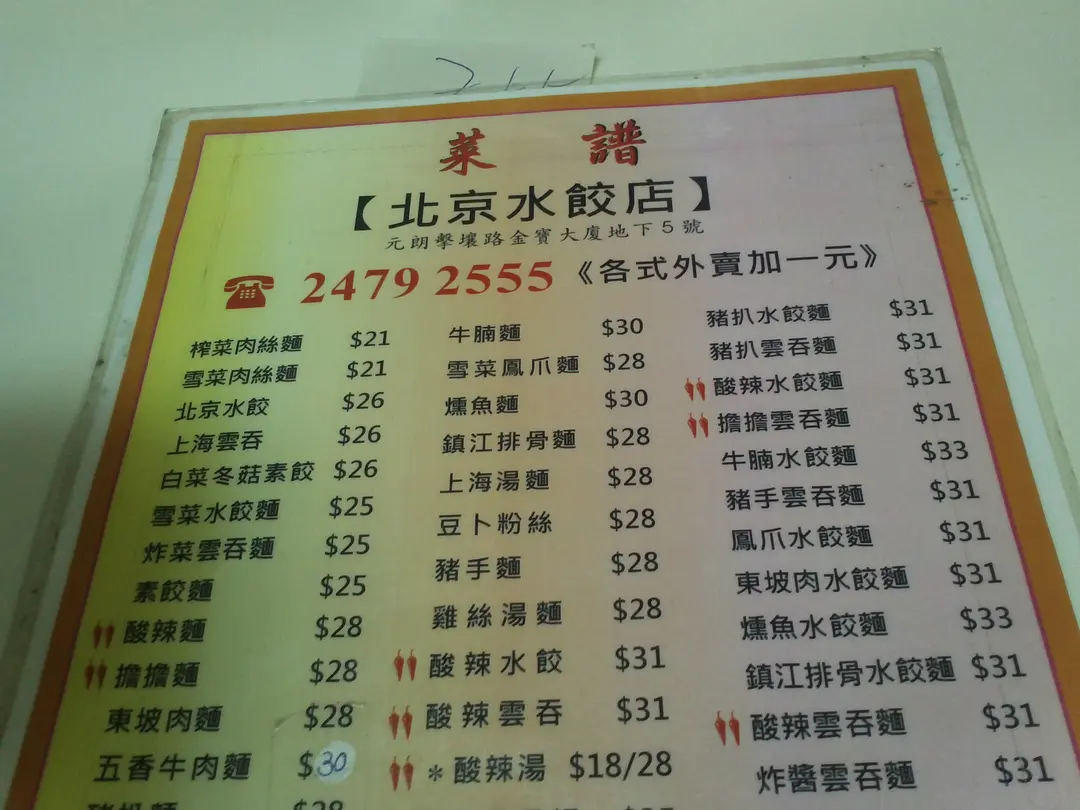 菜譜
【北京水餃店】
元朗擊壤路金寶大廈地下5號
2479 2555《各式外賣加一元》
榨菜肉絲麵 $21
雪菜肉絲麵 $21
北京水餃 $26
上海雲吞 $26
白菜冬菇素餃 $26
雪菜水餃麵 $25
炸菜雲吞麵 $25
素餃麵 $25
酸辣麵 $28
擔擔麵 $28
東坡肉麵 $28
五香牛肉麵 $30
牛腩麵 $30
雪菜鳳爪麵 $28
燻魚麵 $30
鎮江排骨麵 $28
上海湯麵 $28
豆卜粉絲 $28
豬手麵 $28
雞絲湯麵 $28
酸辣水餃 $31
酸辣雲吞 $31
*酸辣湯 $18/28
豬扒水餃麵 $31
豬扒雲吞麵 $31
酸辣水餃麵 $31
擔擔雲吞麵 $31
牛腩水餃麵 $33
豬手雲吞麵 $31
鳳爪水餃麵 $31
東坡肉水餃麵 $31
燻魚水餃麵 $33
鎮江排骨水餃麵 $31
酸辣雲吞麵 $31
炸醬雲吞麵 $31